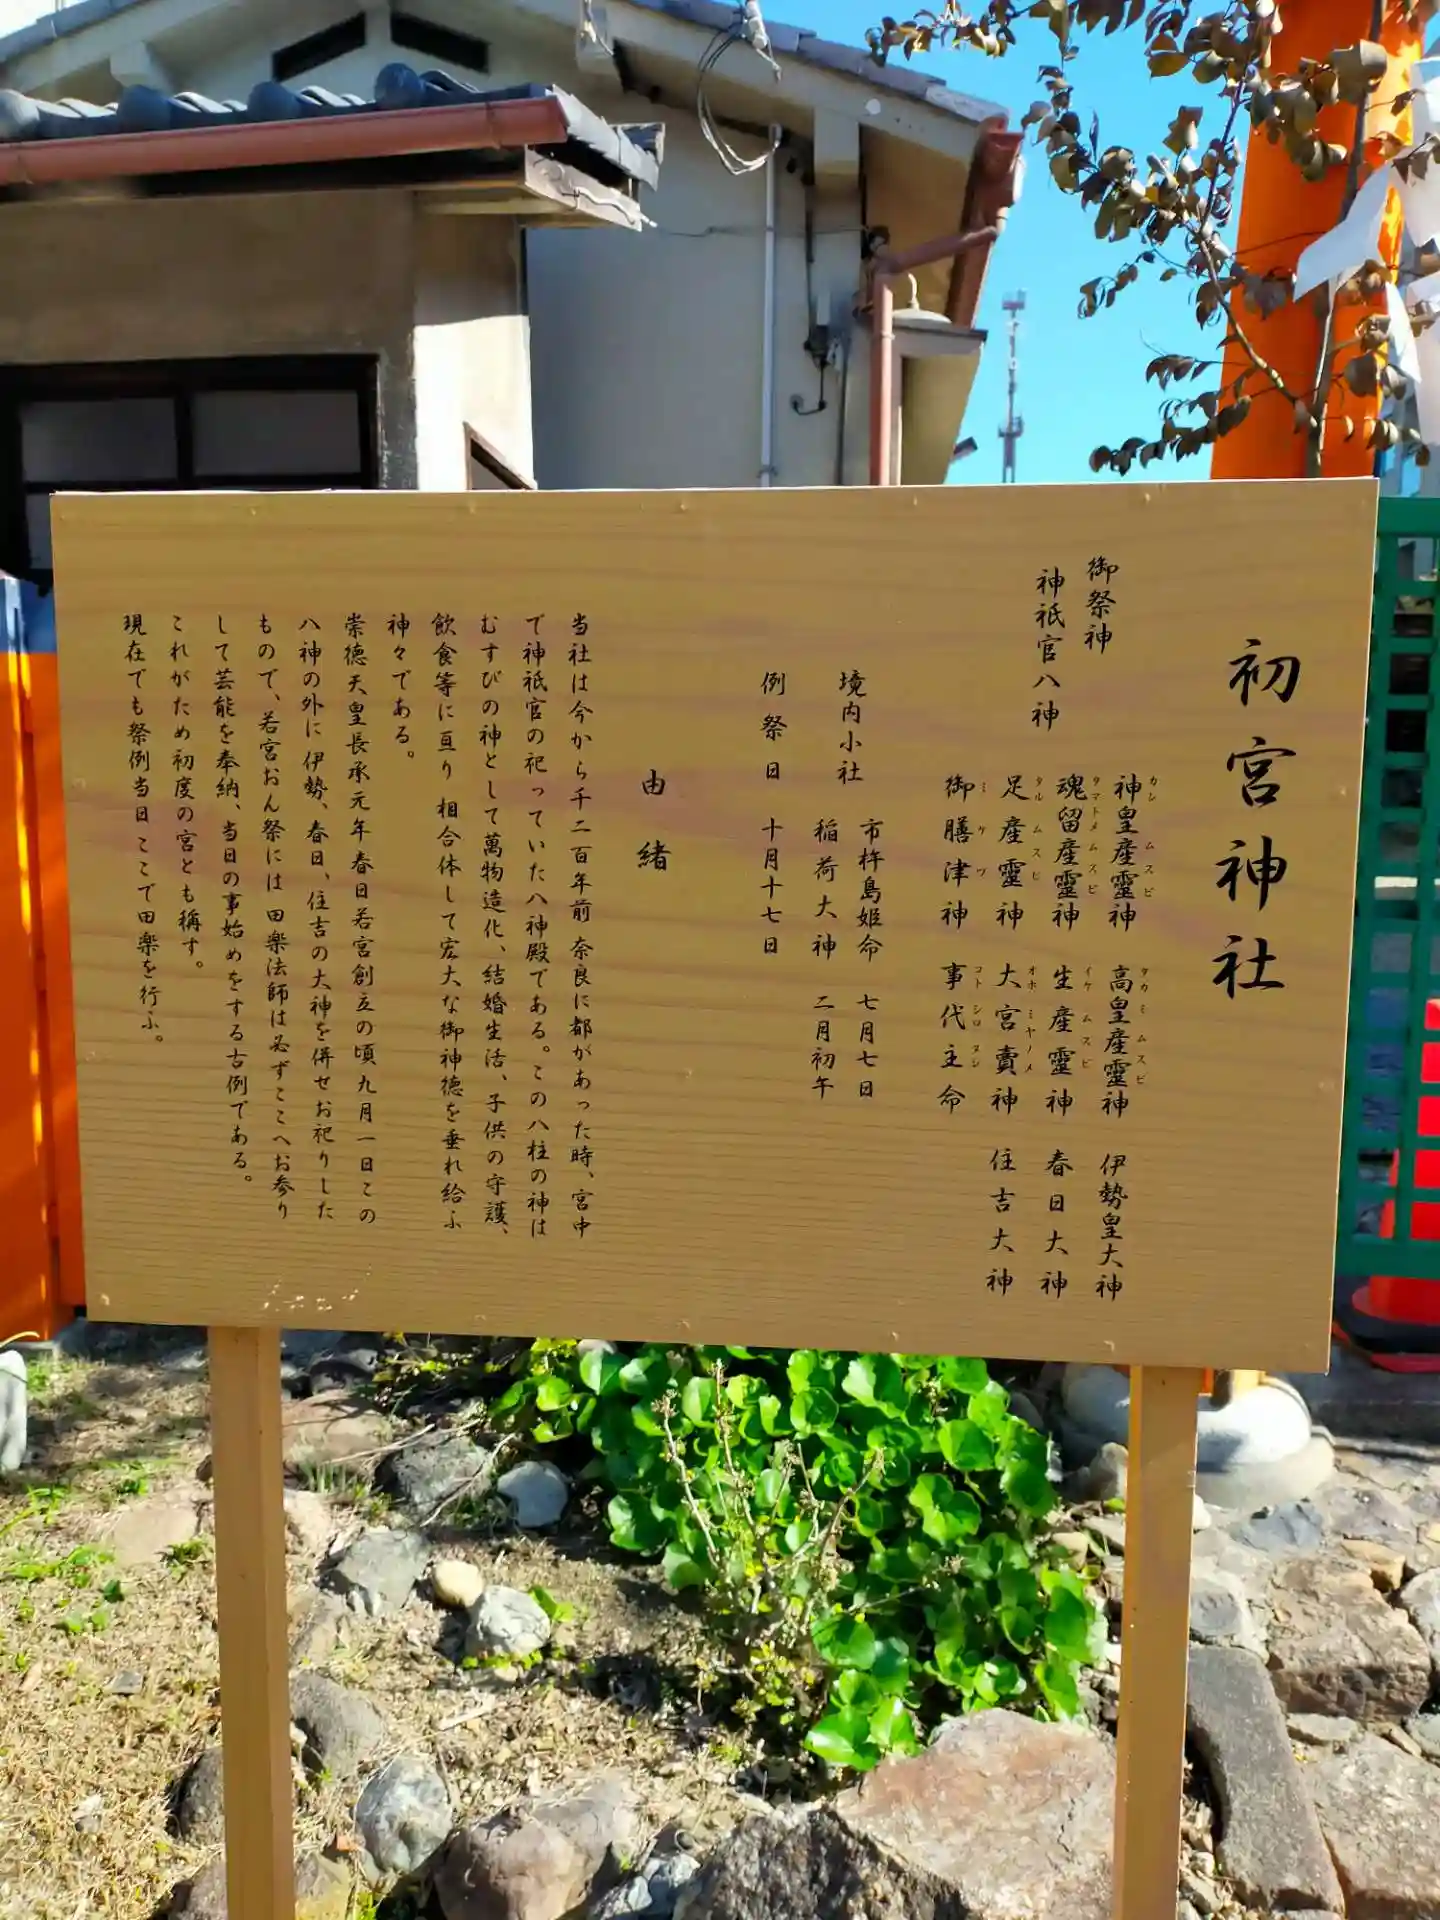 初宮神社
御祭神
神祇官八神
神皇産靈神 高皇産靈神 伊勢皇大神
カン ムスビ タカミ ムスビ
魂留産靈神 生産靈神 春日大神
タマトメムスビ イケ ムスビ
足産靈神 大宮賣神 住吉大神
タル ムスビ オホ ミヤノメ
御膳津神 事代主命
ミ ケ ツ コト シロ ヌシ
境内小社 市杵島姫命 七月七日
稲荷大神 二月初午
例祭日 十月十七日
由緒
当社は今から千二百年前 奈良に都があった時、宮中
で神祇官の祀っていた八神殿である。この八柱の神は
むすびの神として萬物造化、結婚生活、子供の守護、
飲食等に亘り 相合体して宏大な御神徳を垂れ給ふ
神々である。
崇徳天皇長承元年春日若宮創立の頃九月一日この
八神の外に 伊勢、春日、住吉の大神を併せお祀りした
もので、若宮おん祭には 田楽法師は必ずここへお参り
して芸能を奉納、当日の事始めをする古例である。
これがため初度の宮とも稱す。
現在でも祭例当日 ここで田楽を行ふ。